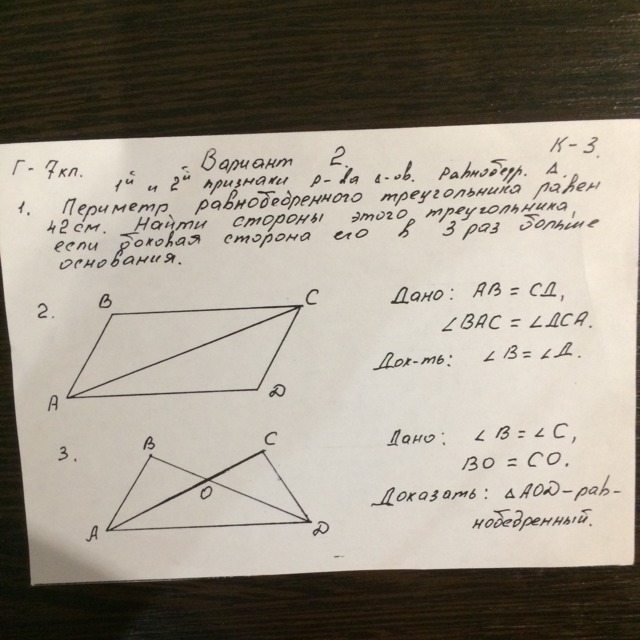 Г-7кл. Вариант 2. К-3.
1й и 2й признаки р-ва △-ов. Равнобедр. △.
1. Периметр равнобедренного треугольника равен
42 см. Найти стороны этого треугольника,
если боковая сторона его в 3 раз больше
основания.
2.
B C
A D
Дано: AB = CД,
∠BAC = ∠ДCA.
Док-ть: ∠B = ∠Д.
3.
B C
O
A D
Дано: ∠B = ∠C,
BO = CO.
Доказать: △AOD-рав-
нобедренный.